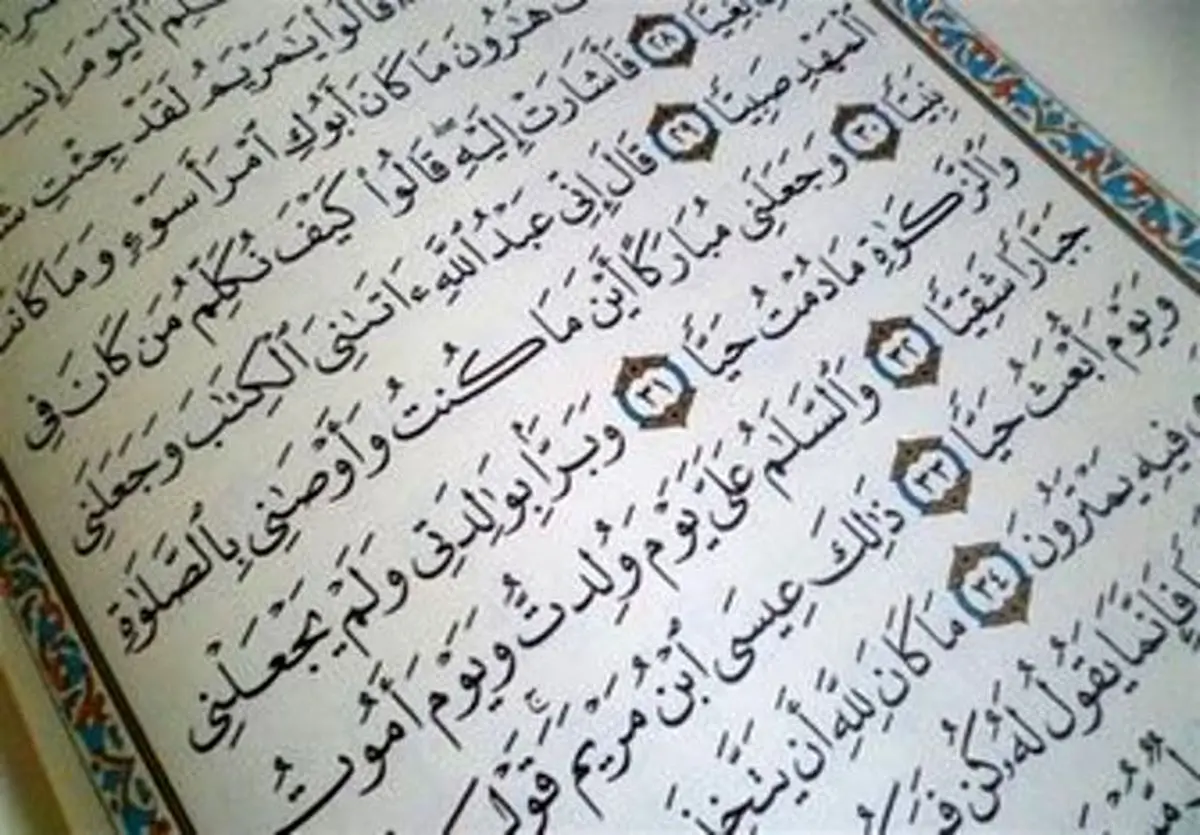 ٱلْيَوْمَ إِنسِيًّا
قَالُوا۟ يَـٰمَرْيَمُ لَقَدْ جِئْتِ
هَـٰرُونَ مَا كَانَ أَبُوكِ ٱمْرَأَ سَوْءٍ وَمَا كَانَتْ
بَغِيًّا ٢٨ فَأَشَارَتْ إِلَيْهِ ۖ قَالُوا۟ كَيْفَ نُكَلِّمُ مَن كَانَ فِى
ٱلْمَهْدِ صَبِيًّا ٢٩ قَالَ إِنِّى عَبْدُ ٱللَّهِ ءَاتَىٰنِىَ ٱلْكِتَـٰبَ وَجَعَلَنِى
نَبِيًّا ٣٠ وَجَعَلَنِى مُبَارَكًا أَيْنَ مَا كُنتُ وَأَوْصَـٰنِى بِٱلصَّلَوٰةِ
وَٱلزَّكَوٰةِ مَا دُمْتُ حَيًّا ٣١ وَبَرًّۢا بِوَٰلِدَتِى وَلَمْ يَجْعَلْنِى
جَبَّارًا شَقِيًّا ٣٢ وَٱلسَّلَـٰمُ عَلَىَّ يَوْمَ وُلِدتُّ وَيَوْمَ أَمُوتُ
وَيَوْمَ أُبْعَثُ حَيًّا ٣٣ ذَٰلِكَ عِيسَى ٱبْنُ مَرْيَمَ ۚ قَوْلَ
فِيهِ يَمْتَرُونَ ٣٤ مَا كَانَ لِلَّهِ أَن يَتَّخِذَ
فَإِنَّمَا يَقُولُ لَهُۥ كُن